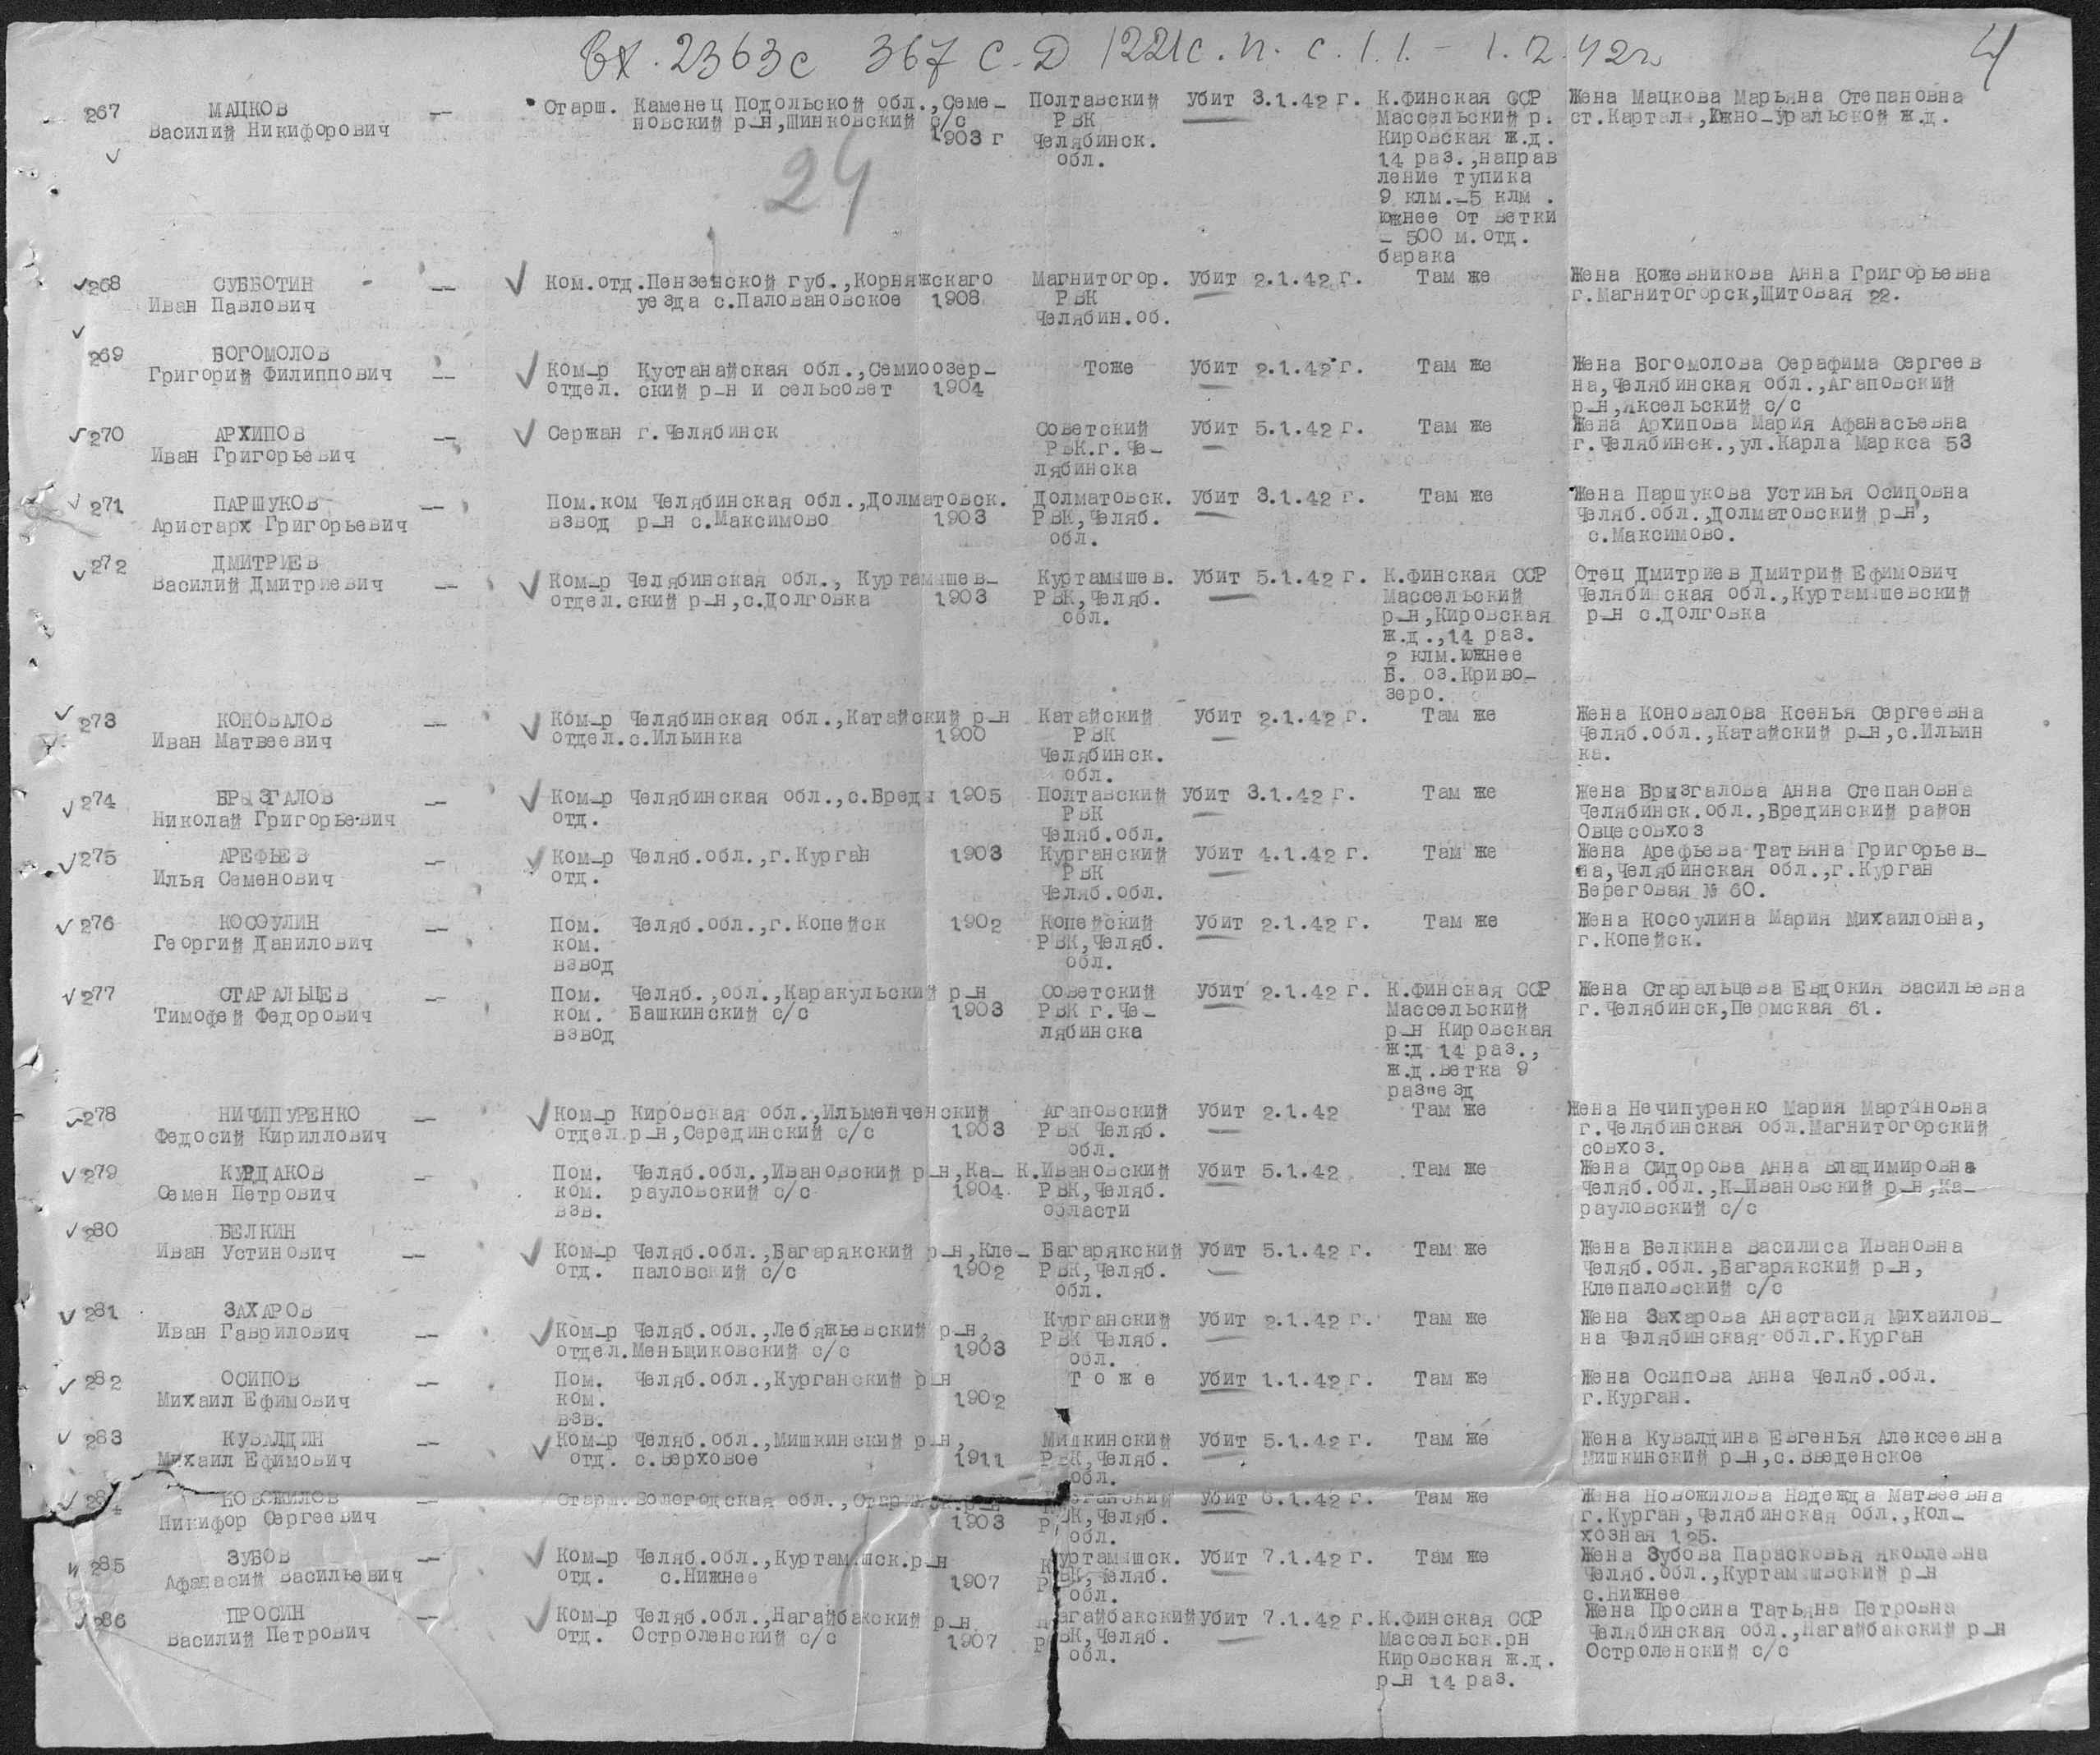 Вх. 2363с 367 С.Д 1221 с.п. с 1.1. - 1.2.42г 4
24
267 МАЦКОВ Василий Никифорович — Старш. Каменец Подольской обл.,Семе-
новский р-н,Шинковский с/с 1903 г
Полтавский РВК Челябинск. обл.
Убит 3.1.42 г.
К.Финская ССР
Массельский р.
Кировская ж.д.
14 раз.,направ
ление тупика
9 клм.-5 клм .
южнее от ветки
- 500 м.отд.
барака
Жена Мацкова Марьяна Степановна
ст.Картал ,Южно-Уральской ж.д.
268 СУББОТИН
Иван Павлович —
Ком.отд.Пензенской губ.,Корняжскаго
уезда с.Паловановское 1908
Магнитогор.
РВК
Челябин.об.
Убит 2.1.42 г.
Там же
Жена Кожевникова Анна Григорьевна
г.Магнитогорск,Щитовая 22.
269 БОГОМОЛОВ
Григорий Филиппович —
Ком-р Кустанайская обл.,Семиозер-
отдел. ский р-н и сельсовет 1904
Тоже
Убит 2.1.42 г.
Там же
Жена Богомолова Серафима Сергеев
на,Челябинская обл.,Агаповский
р-н,Яксельский с/с
270 АРХИПОВ
Иван Григорьевич —
Сержан г.Челябинск
Советский
РВК.г.Че-
лябинска
Убит 5.1.42 г.
Там же
Жена Архипова Мария Афанасьевна
г.Челябинск.,ул.Карла Маркса 53
271 ПАРШУКОВ
Аристарх Григорьевич —
Пом.ком Челябинская обл.,Долматовск.
взвод р-н с.Максимово 1903
Долматовск.
РВК,Челяб.
обл.
Убит 3.1.42 г.
Там же
Жена Паршукова Устинья Осиповна
Челяб.обл.,Долматовский р-н,
с.Максимово.
272 ДМИТРИЕВ
Василий Дмитриевич —
Ком-р Челябинская обл., Куртамышев-
отдел.ский р-н,с.Долговка 1903
Куртамышев.
РВК,Челяб.
обл.
Убит 5.1.42 г.
К.Финская ССР
Массельский
р-н,Кировская
ж.д.,14 раз.
2 клм.южнее
Б. оз.Криво-
зеро.
Отец Дмитриев Дмитрий Ефимович
Челябинская обл.,Куртамышевский
р-н с.Долговка
273 КОНОВАЛОВ
Иван Матвеевич —
Ком-р Челябинская обл.,Катайский р-н
отдел.с.Ильинка 1900
Катайский
РВК
Челябинск.
обл.
Убит 2.1.42 г.
Там же
Жена Коновалова Ксенья Сергеевна
Челяб.обл.,Катайский р-н,с.Ильин
ка.
274 БРЫЗГАЛОВ
Николай Григорьевич —
Ком-р Челябинская обл.,с.Бреды 1905
отд.
Полтавский
РВК
Челяб.обл.
Убит 3.1.42 г.
Там же
Жена Брызгалова Анна Степановна
Челябинск.обл.,Брединский район
Овцесовхоз
275 АРЕФЬЕВ
Илья Семенович —
Ком-р Челяб.обл.,г.Курган 1903
отд.
Курганский
РВК
Челяб.обл.
Убит 4.1.42 г.
Там же
Жена Арефьева Татьяна Григорьев-
на,Челябинская обл.,г.Курган
Береговая № 60.
276 КОСОУЛИН
Георгий Данилович —
Пом. Челяб.обл.,г.Копейск 1902
ком.
взвод
Копейский
РВК,Челяб.
обл.
Убит 2.1.42 г.
Там же
Жена Косоулина Мария Михаиловна,
г.Копейск.
277 СТАРАЛЬЦЕВ
Тимофей Федорович —
Пом. Челяб.,обл.,Каракульский р-н
ком. Башкинский с/с 1903
взвод
Советский
РВК г.Че-
лябинска
Убит 2.1.42 г.
К.Финская ССР
Массельский
р-н Кировская
ж:д 14 раз.,
ж.д.ветка 9
разъезд
Жена Старальцева Евдокия Васильевна
г.Челябинск,Пермская 61.
278 НИЧИПУРЕНКО
Федосий Кириллович —
Ком-р Кировская обл.,Ильменченский
отдел.р-н,Серединский с/с 1903
Агаповский
РВК Челяб.
обл.
Убит 2.1.42
Там же
Жена Нечипуренко Мария Мартяновна
г.Челябинская обл.Магнитогорский
совхоз.
279 КУРДАКОВ
Семен Петрович —
Пом. Челяб.обл.,Ивановский р-н,Ка-
ком. рауловский с/с 1904
взв.
К.Ивановский
РВК,Челяб.
области
Убит 5.1.42
Там же
Жена Сидорова Анна Владимировна
Челяб.обл.,К-Ивановский р-н,Ка-
рауловский с/с
280 БЕЛКИН
Иван Устинович —
Ком-р Челяб.обл.,Багарякский р-н,Кле-
отд. паловский с/с 1902
Багарякский
РВК,Челяб.
обл.
Убит 5.1.42 г.
Там же
Жена Белкина Василиса Ивановна
Челяб.обл.,Багарякский р-н,
Клепаловский с/с
281 ЗАХАРОВ
Иван Гаврилович —
Ком-р Челяб.обл.,Лебяжьевский р-н,
отдел.Меньщиковский с/с 1903
Курганский
РВК Челяб.
обл.
Убит 2.1.42 г.
Там же
Жена Захарова Анастасия Михаилов-
на Челябинская обл.г.Курган
282 ОСИПОВ
Михаил Ефимович —
Пом. Челяб.обл.,Курганский р-н
ком. 1902
взв.
Т о ж е
Убит 1.1.42 г.
Там же
Жена Осипова Анна Челяб.обл.
г.Курган.
283 КУВАЛДИН
Михаил Ефимович —
Ком-р Челяб.обл.,Мишкинский р-н,
отд. с.Верховое 1911
Мишкинский
РВК,Челяб.
обл.
Убит 5.1.42 г.
Там же
Жена Кувалдина Евгенья Алексеевна
Мишкинский р-н,с.Введенское
284 НОВОЖИЛОВ
Никифор Сергеевич —
Старш. Вологодская обл.,
1903
Курганский
РВК,Челяб.
обл.
Убит 6.1.42 г.
Там же
Жена Новожилова Надежда Матвеевна
г.Курган,Челябинская обл.,Кол-
хозная 125.
285 ЗУБОВ
Афанасий Васильевич —
Ком-р Челяб.обл.,Куртамышск.р-н
отд. с.Нижнее 1907
Куртамышск.
РВК,Челяб.
обл.
Убит 7.1.42 г.
Там же
Жена Зубова Парасковья Яковлевна
Челяб.обл.,Куртамышвский р-н
с.Нижнее
286 ПРОСИН
Василий Петрович —
Ком-р Челяб.обл.,Нагайбакский р-н
отд. Остроленский с/с 1907
Нагайбакский
РВК,Челяб.
обл.
Убит 7.1.42 г.
К.Финская ССР
Массельск.рн
Кировская ж.д.
р-н 14 раз.
Жена Просина Татьяна Петровна
Челябинская обл.,Нагайбакский р-н
Остроленский с/с